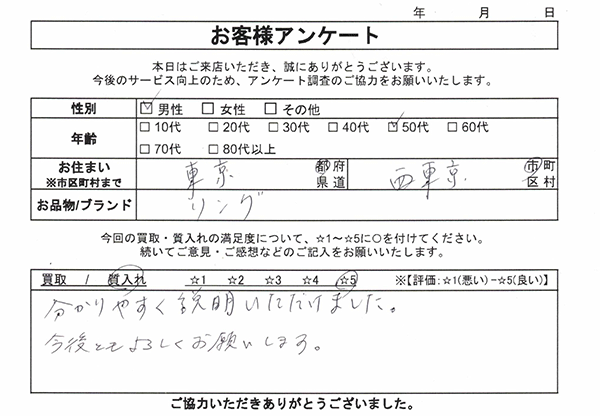 年 月 日
お客様アンケート
本日はご来店いただき、誠にありがとうございます。
今後のサービス向上のため、アンケート調査のご協力をお願いいたします。
性別 ☑男性 □女性 □その他
年齢 □10代 □20代 □30代 □40代 ☑50代 □60代
□70代 □80代以上
お住まい 東京 都府 西東京 市町
※市区町村まで 県道 区村
お品物/ブランド リング
今回の買取・質入れの満足度について、☆1～☆5に○を付けてください。
続いてご意見・ご感想などのご記入をお願いいたします。
買取 / 質入れ ☆1 ☆2 ☆3 ☆4 ☆5 ※【評価:☆1(悪い)－☆5(良い)】
分かりやすく説明いただけました。
今後ともよろしくお願いします。
ご協力いただきありがとうございました。